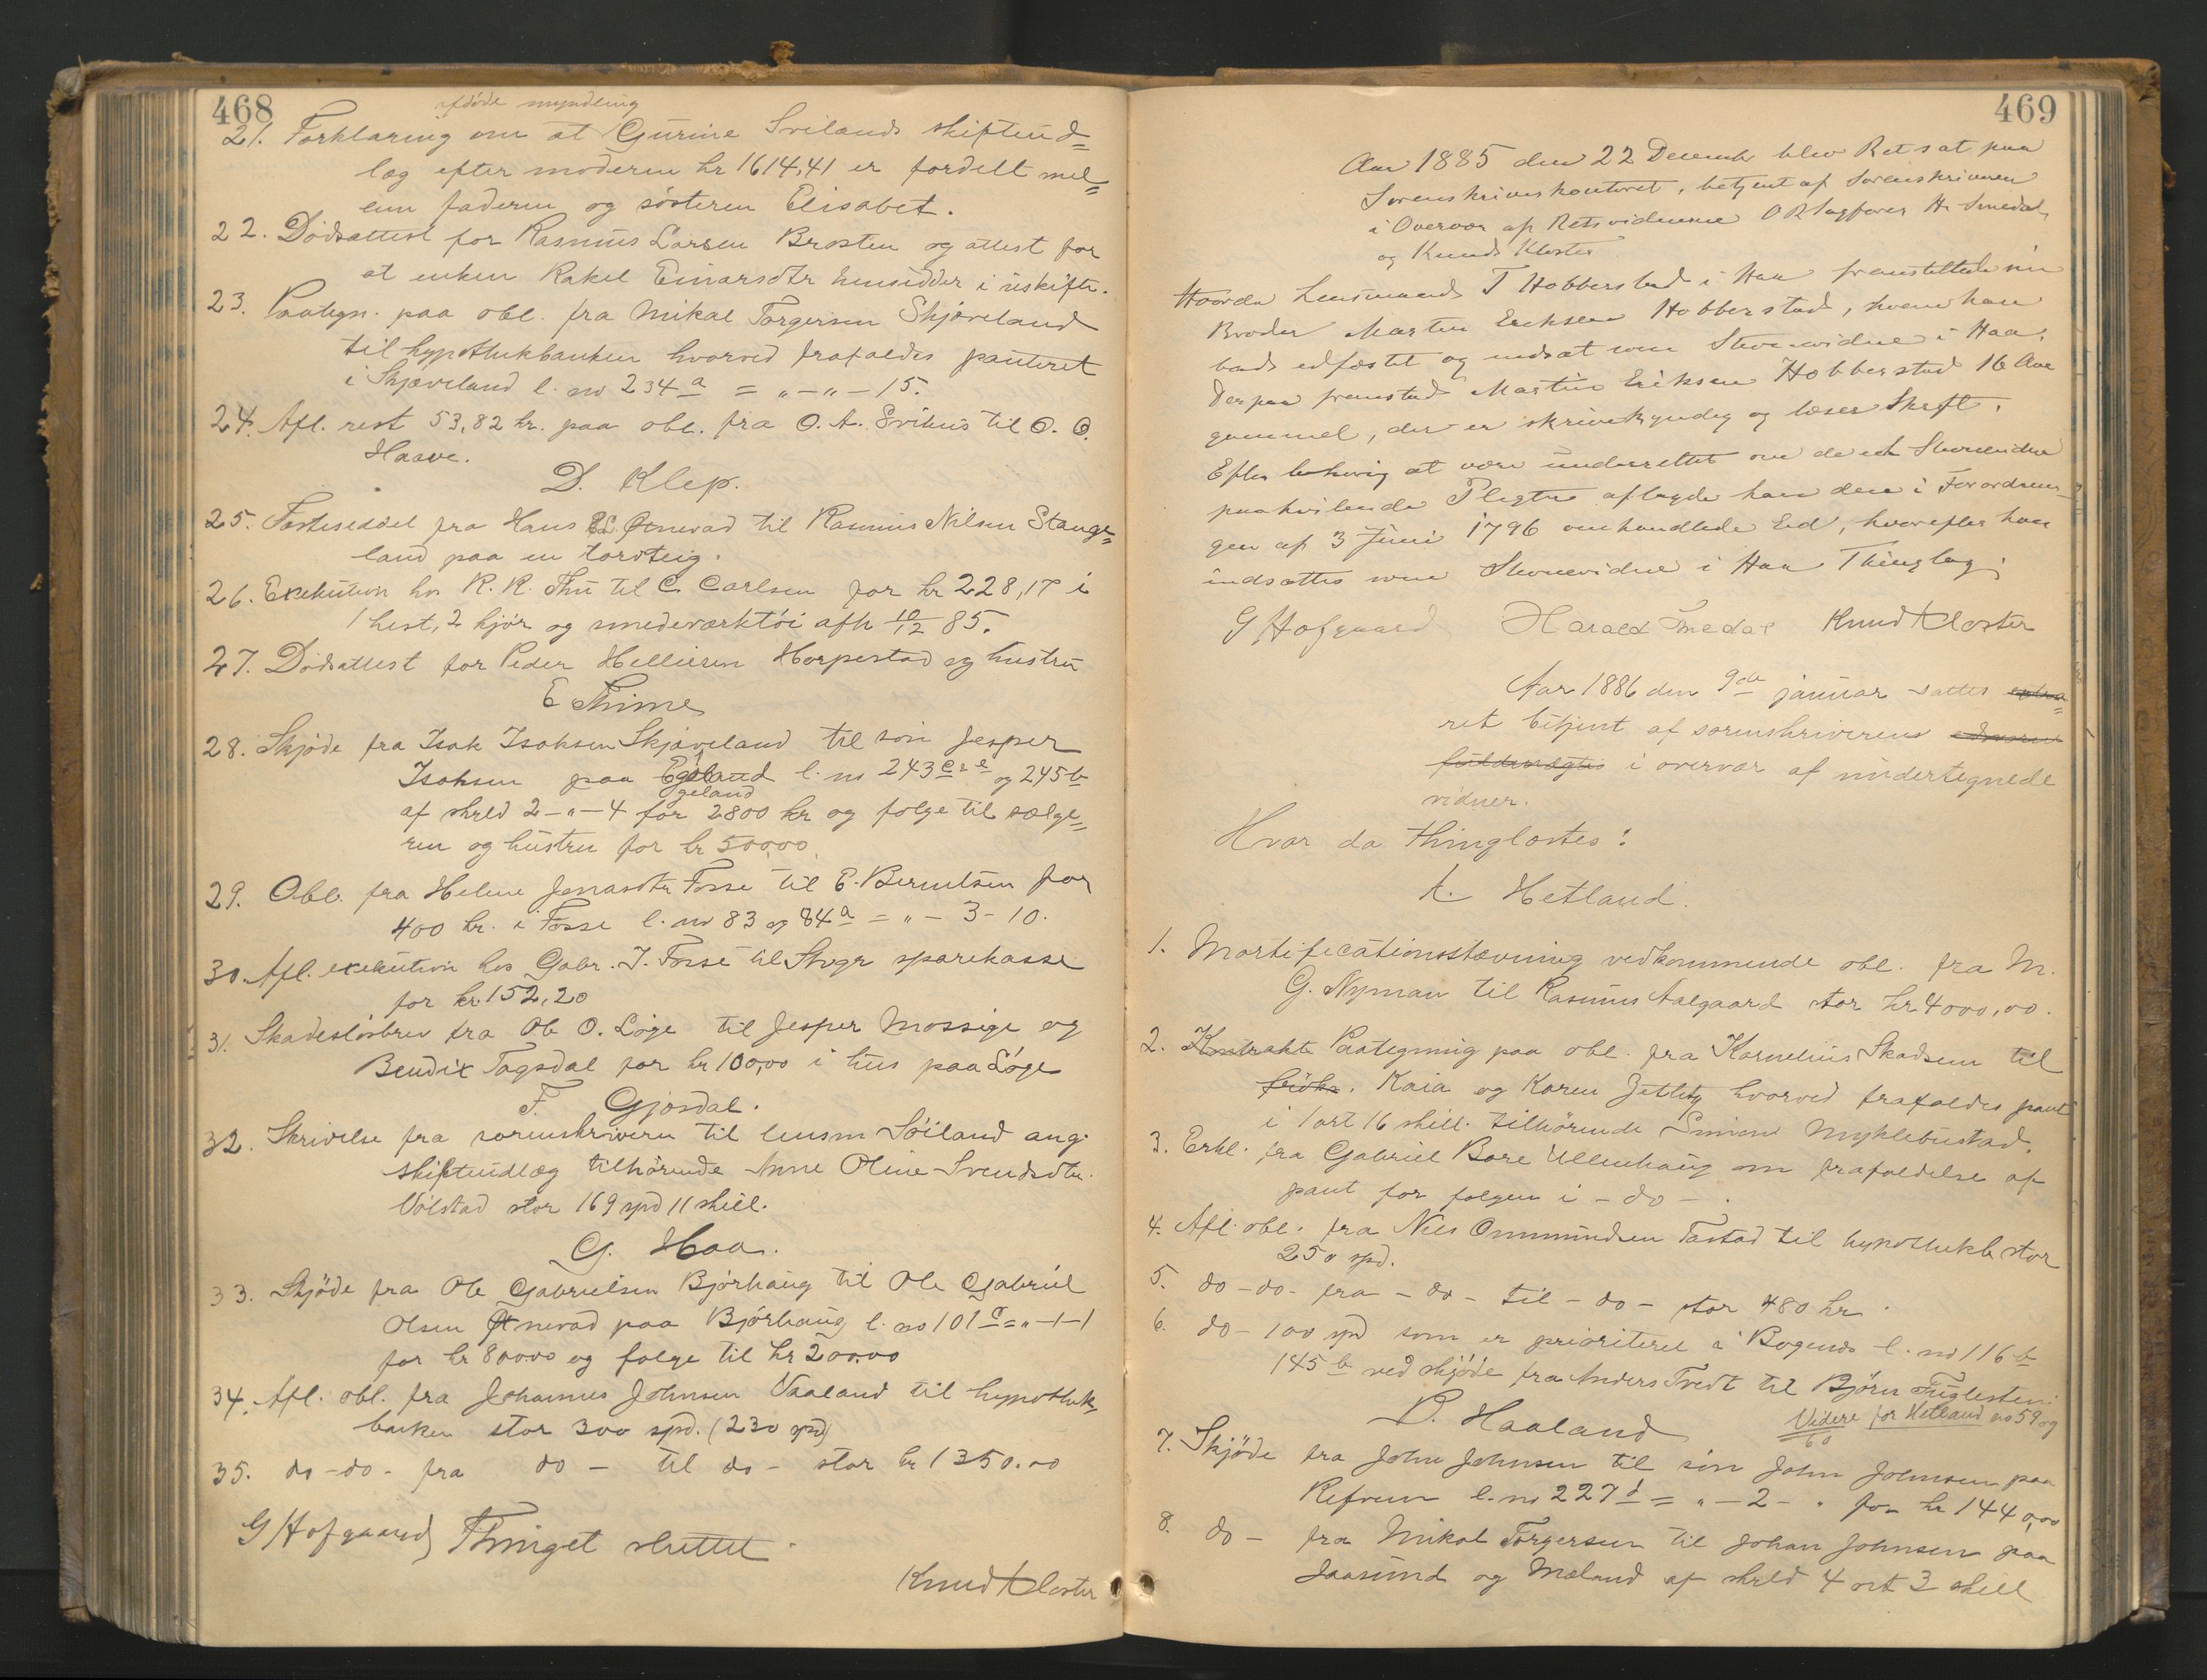 468
afdöde myndling
21. Forklaring om at Gurine Svilands skifteud=
læg efter moderen kr 1614,41 er fordelt mel=
em faderen og sösteren Elisabet.
22. Dödsattest for Rasmus Larsen Brosten og attest for
at enken Rakel Einarsdtr hensidder i uskifte.
23. Paategn. paa obl. fra Mikal Torgersen Skjæveland
til hypothekbanken hvorved frafaldes panteret
i Skjæveland l. no 234 a = " - " - 15.
24. Afl. rest 53,82 kr. paa obl. fra O. A. Svihus til O. O.
Haave.
D. Klep.
25. Festeseddel fra Hans Öxnevad til Rasmus Nilsen Stange=
land paa en torvteig.
26. Exekution hos R. R. Thu til C. Carlsen for kr 228,17 i
1 hest, 2 kjör og smedeværktöi afh 10/12 85.
27. Dödsattest for Peder Helliesen Horpestad og hustru
E Thime
28. Skjöde fra Isak Isaksen Skjæveland til sön Jesper
Isaksen paa Egeland l. no 243 c & e og 245 b
geland
af skyld 2 - " - 4 for 2800 kr og folge til sælge=
ren og hustru for kr 500,00
29. Obl. fra Helene Jonasdtr Fosse til E. Berentsen for
400 kr. i Fosse l. no 83 og 84 a = " - 3 - 10.
30. Afl. exekution hos Gabr. J. Fosse til Stvgr sparekasse
for kr. 152,20
31. Skadeslösbrev fra Ole O. Löge til Jesper Mossige og
Bendix Tagsdal for kr 100,00 i hus paa Löge
F. Gjesdal.
32. Skrivelse fra sorenskriveren til lensm Söiland ang.
skifteudlæg tilhörende Anne Oline Svendsdtr.
Völstad stor 169 spd 11 skill.
G. Haa.
33. Skjöde fra Ole Gabrielsen Bjórhaug til Ole Gabriel
Olsen Öxnevad paa Bjórhaug l. no 101 c = " - 1 - 1
for kr 800,00 og folge til kr 200,00
34. Afl. obl. fra Johannes Johnsen Vaaland til hypothek,
banken stor 300 spd. (230 spd)
35. do - do - fra do - til do - stor kr 1350.00
G Hofgaard Thinget sluttet.
Knud Kloster
469
Aar 1885 den 22 December blev Ret sat paa
Sorenskriverkontoret, betjent af Sorenskriveren
i Overvær af Retsvidnerne O R Sagfører H. Smedal
og Knud Kloster
Hvorda Lensmand T Hobberstad i Haa fremstillede sin
Broder Martin Eriksen Hobberstad, hvem han
bad edfæstet og indsat som Stevnevidne i Haa.
Derpaa fremstod Martin Eriksen Hobberstad 16 Aar
gammel, der er skrivekyndig og læser Skrift.
Efter behørig at være underrettet om de et Stevnevidne
paahvilende Pligter aflagde han den i Forordnin-
gen af 3 Juni 1796 omhandlede Eed, hvorefter han
indsattes som Stevnevidne i Haa Thinglag.
G Hofgaard Harald Smedal Knud Kloster
Aar 1886 den 9de januar sattes extra=
ret betjent af sorenskriverens edsvorne
fuldmægtig i overvær af undertegnede
vidner.
Hvor da thinglæstes:
A. Hetland.
1. Mortificationsstævning vedkommende obl. fra M.
G. Nyman til Rasmus Aalgaard stor kr. 4000,00.
2. Kontrakt Paategning paa obl. fra Kornelius Skadsem til
frökn. Kaia og Karen Jelletz hvorved frafaldes pant
i 1 ort 16 skill. tilhörende Simon Myklebustad.
3. Erkl. fra Gabriel Bore Ullenhaug om frafaldelse af
pant for folgen i - do - .
4. Afl. obl. fra Nils Ommundsen Tastad til hypothekb. stor
250 spd.
5. do - do - fra - do - til - do - stor 480 kr.
6. do - 100 spd som er prioriteret i Bogends l. no 116 b
145 b ved skjöde fra Anders Tvedt til Björn Fuglesten.
B. Haaland Videre for Hetland no 59 og
60
7. Skjöde fra John Johnsen til sön John Johnsen paa
Refsnes l. no 227 d = " - 2 - " for kr 1440,00
8. do - fra Mikal Torgersen til Johan Johnsen paa
Jaasund og Meland af skyld 4 ort 3 skill